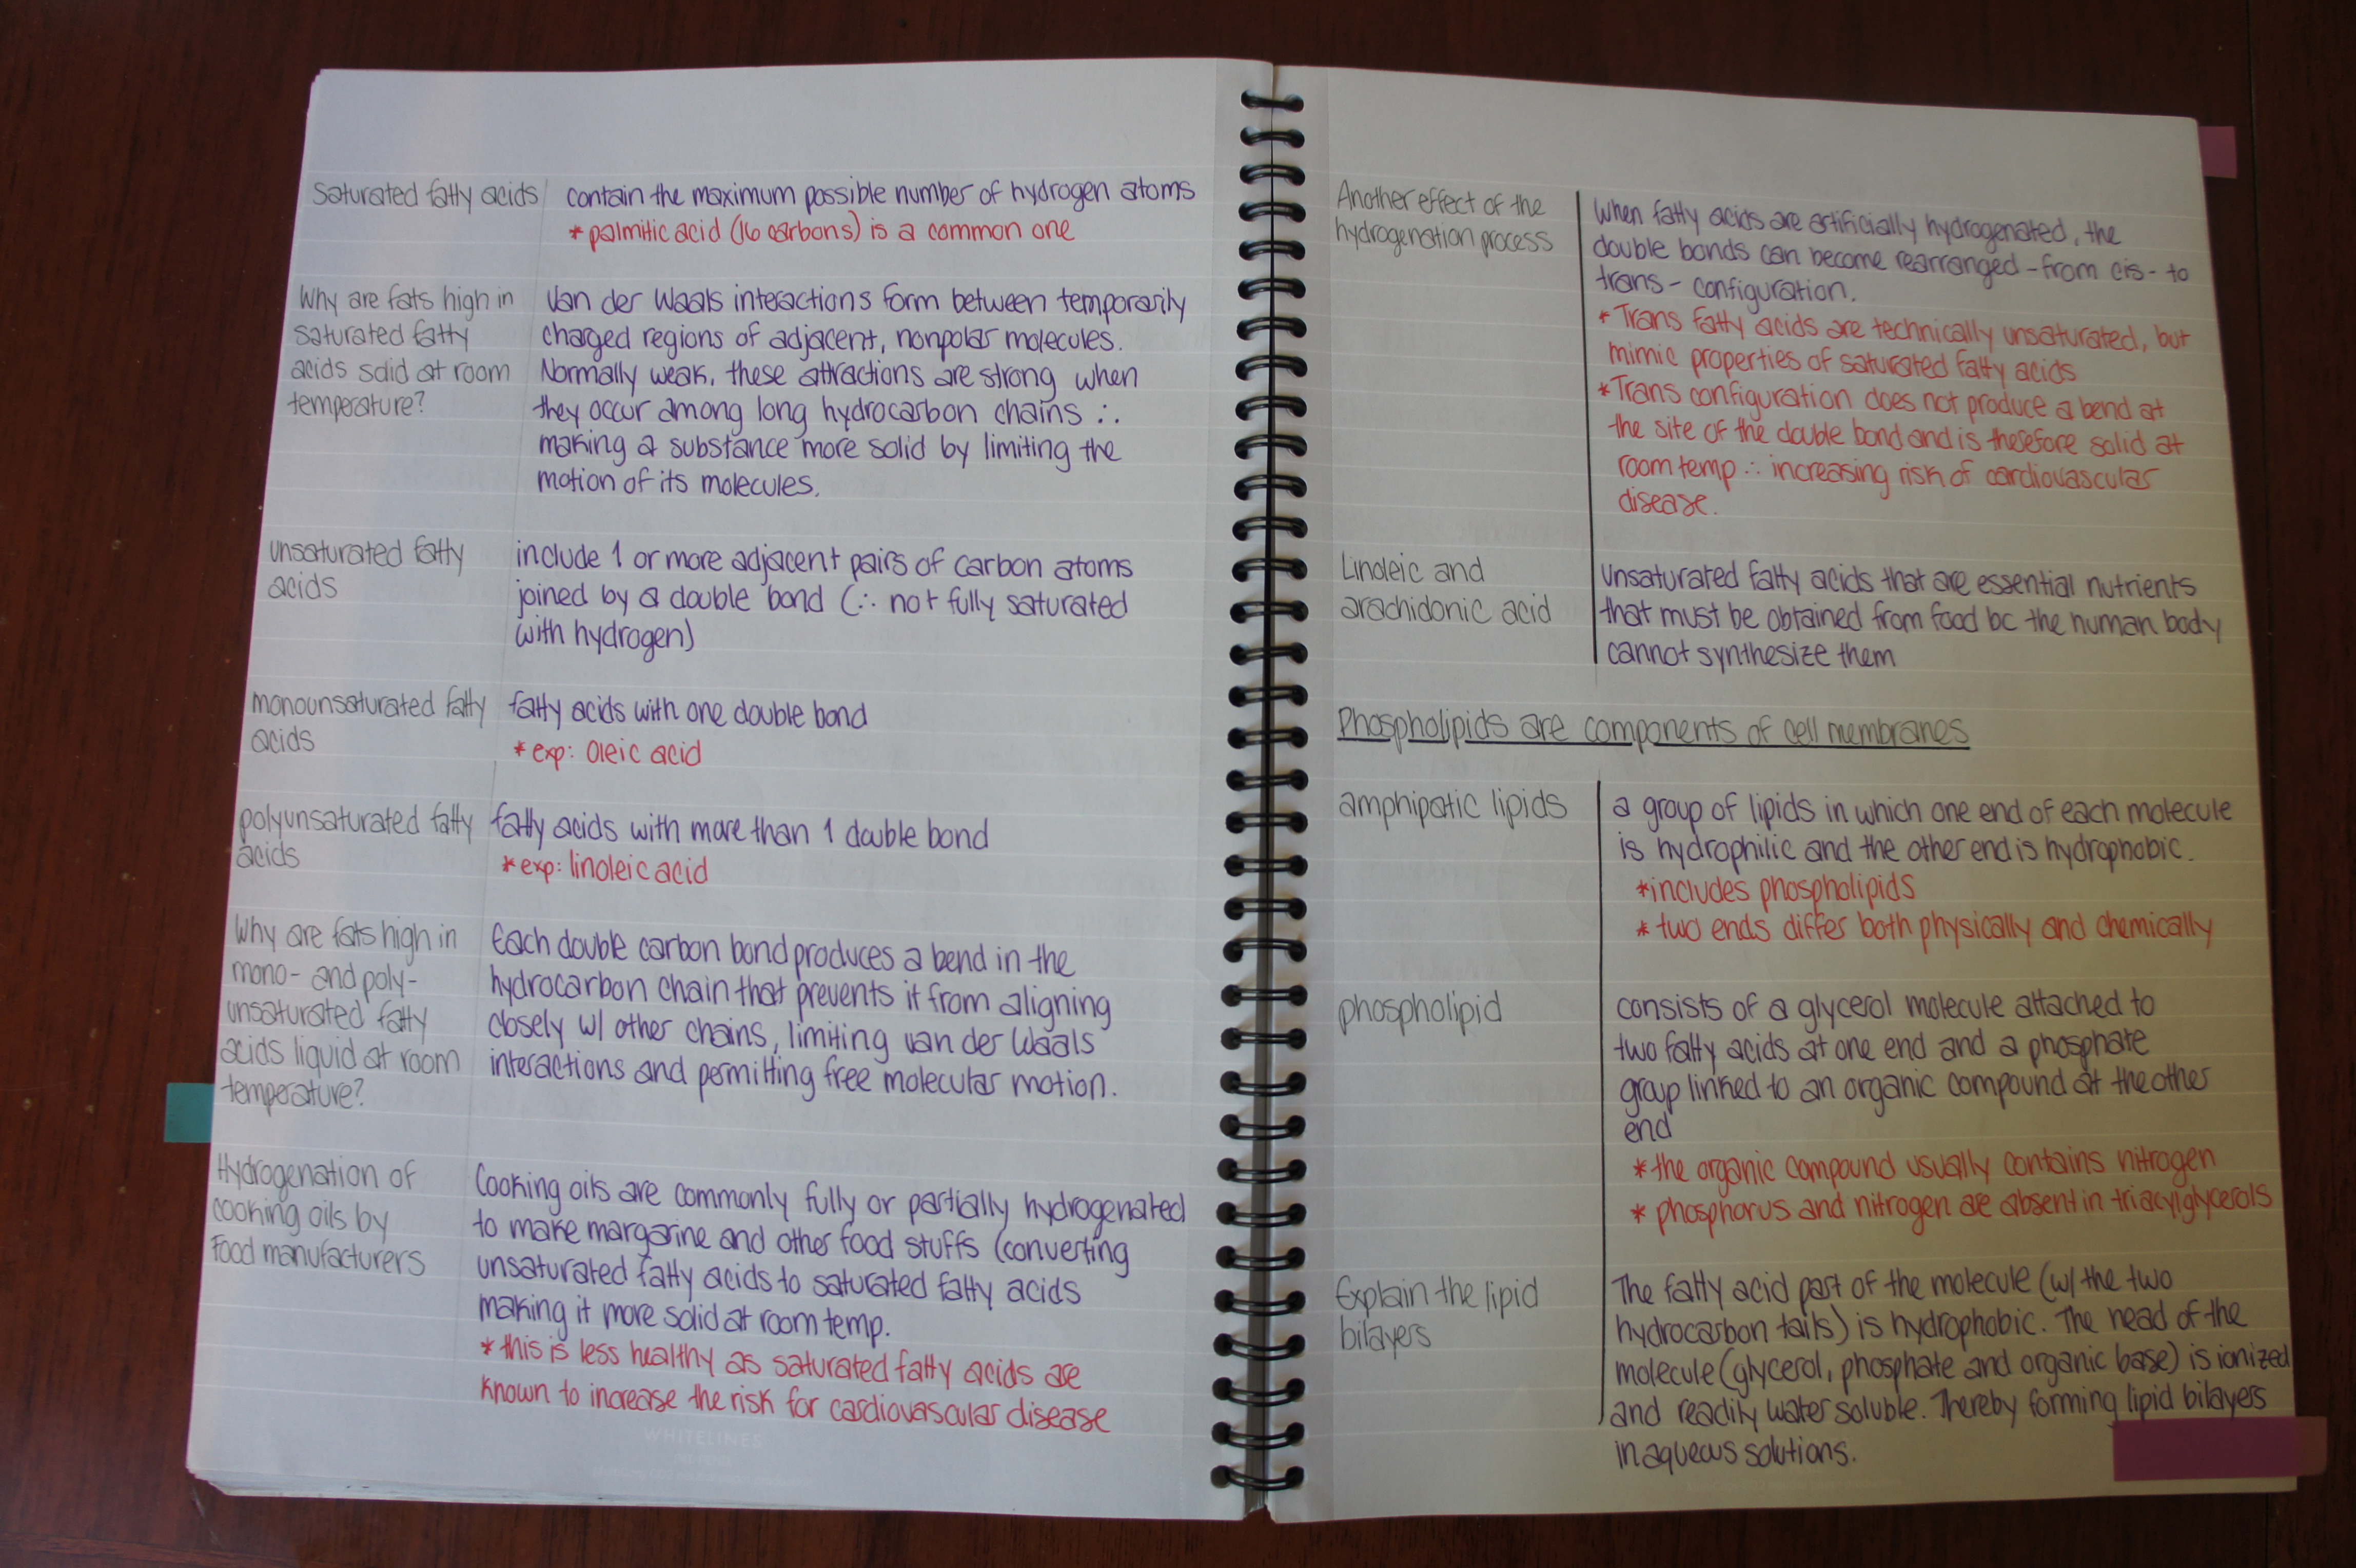 Saturated fatty acids
contain the maximum possible number of hydrogen atoms
* palmitic acid (16 carbons) is a common one
Why are fats high in
saturated fatty
acids solid at room
temperature?
Van der Waals interactions form between temporarily
charged regions of adjacent, nonpolar molecules.
Normally weak, these attractions are strong when
they occur among long hydrocarbon chains ∴
making a substance more solid by limiting the
motion of its molecules.
unsaturated fatty
acids
include 1 or more adjacent pairs of carbon atoms
joined by a double bond (∴ not fully saturated
with hydrogen)
monounsaturated fatty
acids
fatty acids with one double bond
* exp: Oleic acid
polyunsaturated fatty
acids
fatty acids with more than 1 double bond
* exp: linoleic acid
Why are fats high in
mono- and poly-
unsaturated fatty
acids liquid at room
temperature?
Each double carbon bond produces a bend in the
hydrocarbon chain that prevents it from aligning
closely w/ other chains, limiting van der Waals
interactions and permitting free molecular motion.
Hydrogenation of
cooking oils by
Food manufacturers
Cooking oils are commonly fully or partially hydrogenated
to make margarine and other food stuffs (converting
unsaturated fatty acids to saturated fatty acids
making it more solid at room temp.
* this is less healthy as saturated fatty acids are
known to increase the risk for cardiovascular disease
WHITELINES
Another effect of the
hydrogenation process
When fatty acids are artificially hydrogenated, the
double bonds can become rearranged - from cis- to
trans- configuration.
* Trans fatty acids are technically unsaturated, but
mimic properties of saturated fatty acids
* Trans configuration does not produce a bend at
the site of the double bond and is therefore solid at
room temp ∴ increasing risk of cardiovascular
disease.
Linoleic and
arachidonic acid
Unsaturated fatty acids that are essential nutrients
that must be obtained from food bc the human body
cannot synthesize them
Phospholipids are components of cell membranes
amphipatic lipids
a group of lipids in which one end of each molecule
is hydrophilic and the other end is hydrophobic.
* includes phospholipids
* two ends differ both physically and chemically
phospholipid
consists of a glycerol molecule attached to
two fatty acids at one end and a phosphate
group linked to an organic compound at the other
end
* the organic compound usually contains nitrogen
* phosphorus and nitrogen are absent in triacylglycerols
Explain the lipid
bilayers
The fatty acid part of the molecule (w/ the two
hydrocarbon tails) is hydrophobic. The head of the
molecule (glycerol, phosphate and organic base) is ionized
and readily water soluble. Thereby forming lipid bilayers
in aqueous solutions.